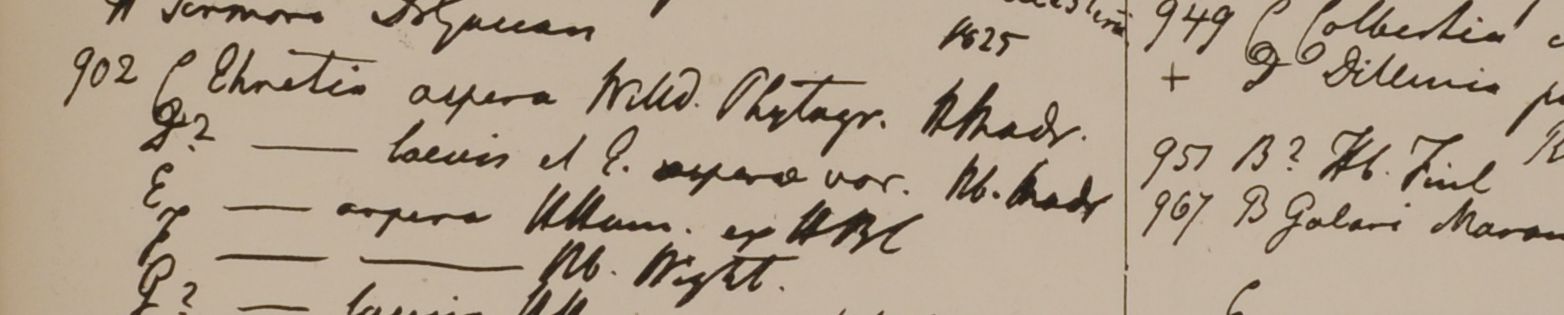 1825
902 C Ehretia aspera Willd. Phytogr. HMadr.
D? — laevis et E. aspera var. Hb. Madr
E — aspera HHam. ex HBC
F — — Hb. Wight.
G? — laevis
949 C Colbertia
+ D Dillenia
951 B? Hb. Finl
967 B Golari